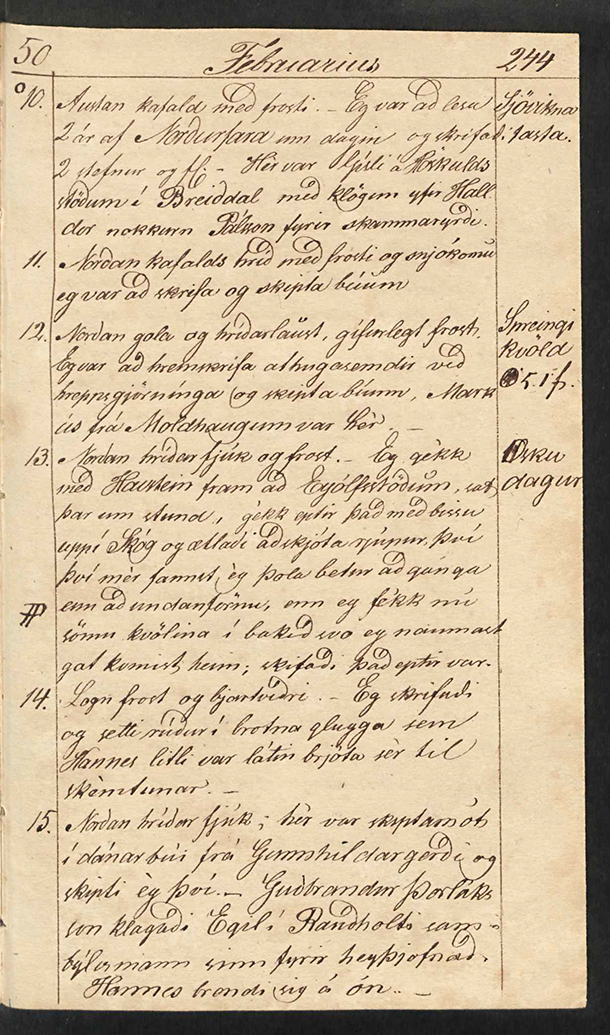 50 Februarius 244
10. Austan kafald með frosti. – Eg var að lesa Sjövikna
2 ár af Norðurfara um dagin og skrifaði fasta.
2 stefnur og fl. – Hér var Gísli á Höskulds
stöðum í Breiddal með klögun yfir Hall
dór nokkurn Pálsson fyrir skammaryrði.
11. Norðan kafalds hríð með frosti og snjókomu
eg var að skrifa og skipta búum
12. Norðan gola og hríðarlaust, gífurlegt frost. Spreingi
Eg var að hreinskrifa athugasemdir við kvöld
hreppsgjörnínga og skipta búum, Mark 51 f.
ús frá Moldhaugum var hér. –
13. Norðan hríðar fjúk og frost. – Eg gékk Ösku
með Havstein fram að Eyólfsstöðum, sat dagur
þar um stund, gékk eptir það með bissu
uppí Skóg og ætlaði að skjóta rjupur, því
því mér fannst, èg þola betur að gánga
enn að undanförnu, enn eg fékk nú
sömu kvölina í bakið svo eg naumast
gat komist heim; skifaði það eptir var.
14. Logn frost og bjartviðri. – Eg skrifaði
og setti rúður í brotna glugga sem
Hannes litli var látin brjóta sér til
skémtunar. –
15. Norðan hríðar fjúk; hèr var skiptamót
í dánarbúi frá Gunnhildargerði og
skipti èg því. – Guðbrandur Þorláks
son klagaði Egil í Rauðholti sam-
býlismann sinn fyrir heyþjofnað.
Hannes brendi sig á ón. –